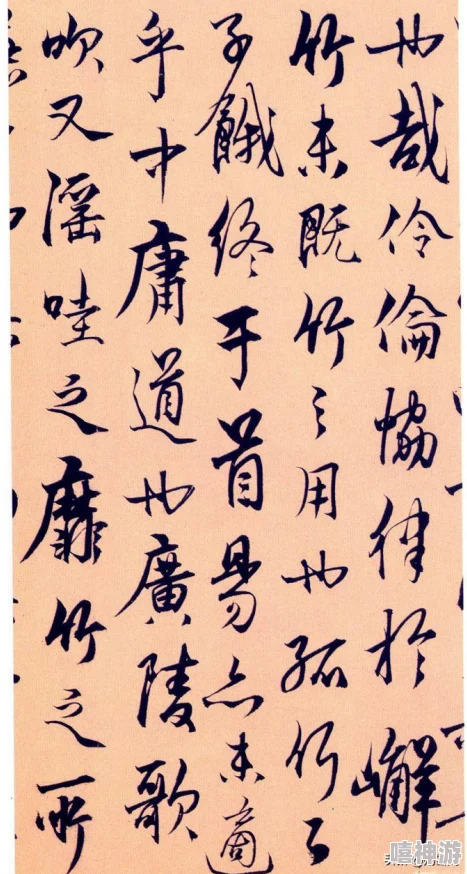 也哉伶倫協律於嶰
竹未既竹之用也孤竹之
子餓終于首昜亦未適
乎中庸道也廣陵歌
吹又淫哇之靡竹之所
嘻神游